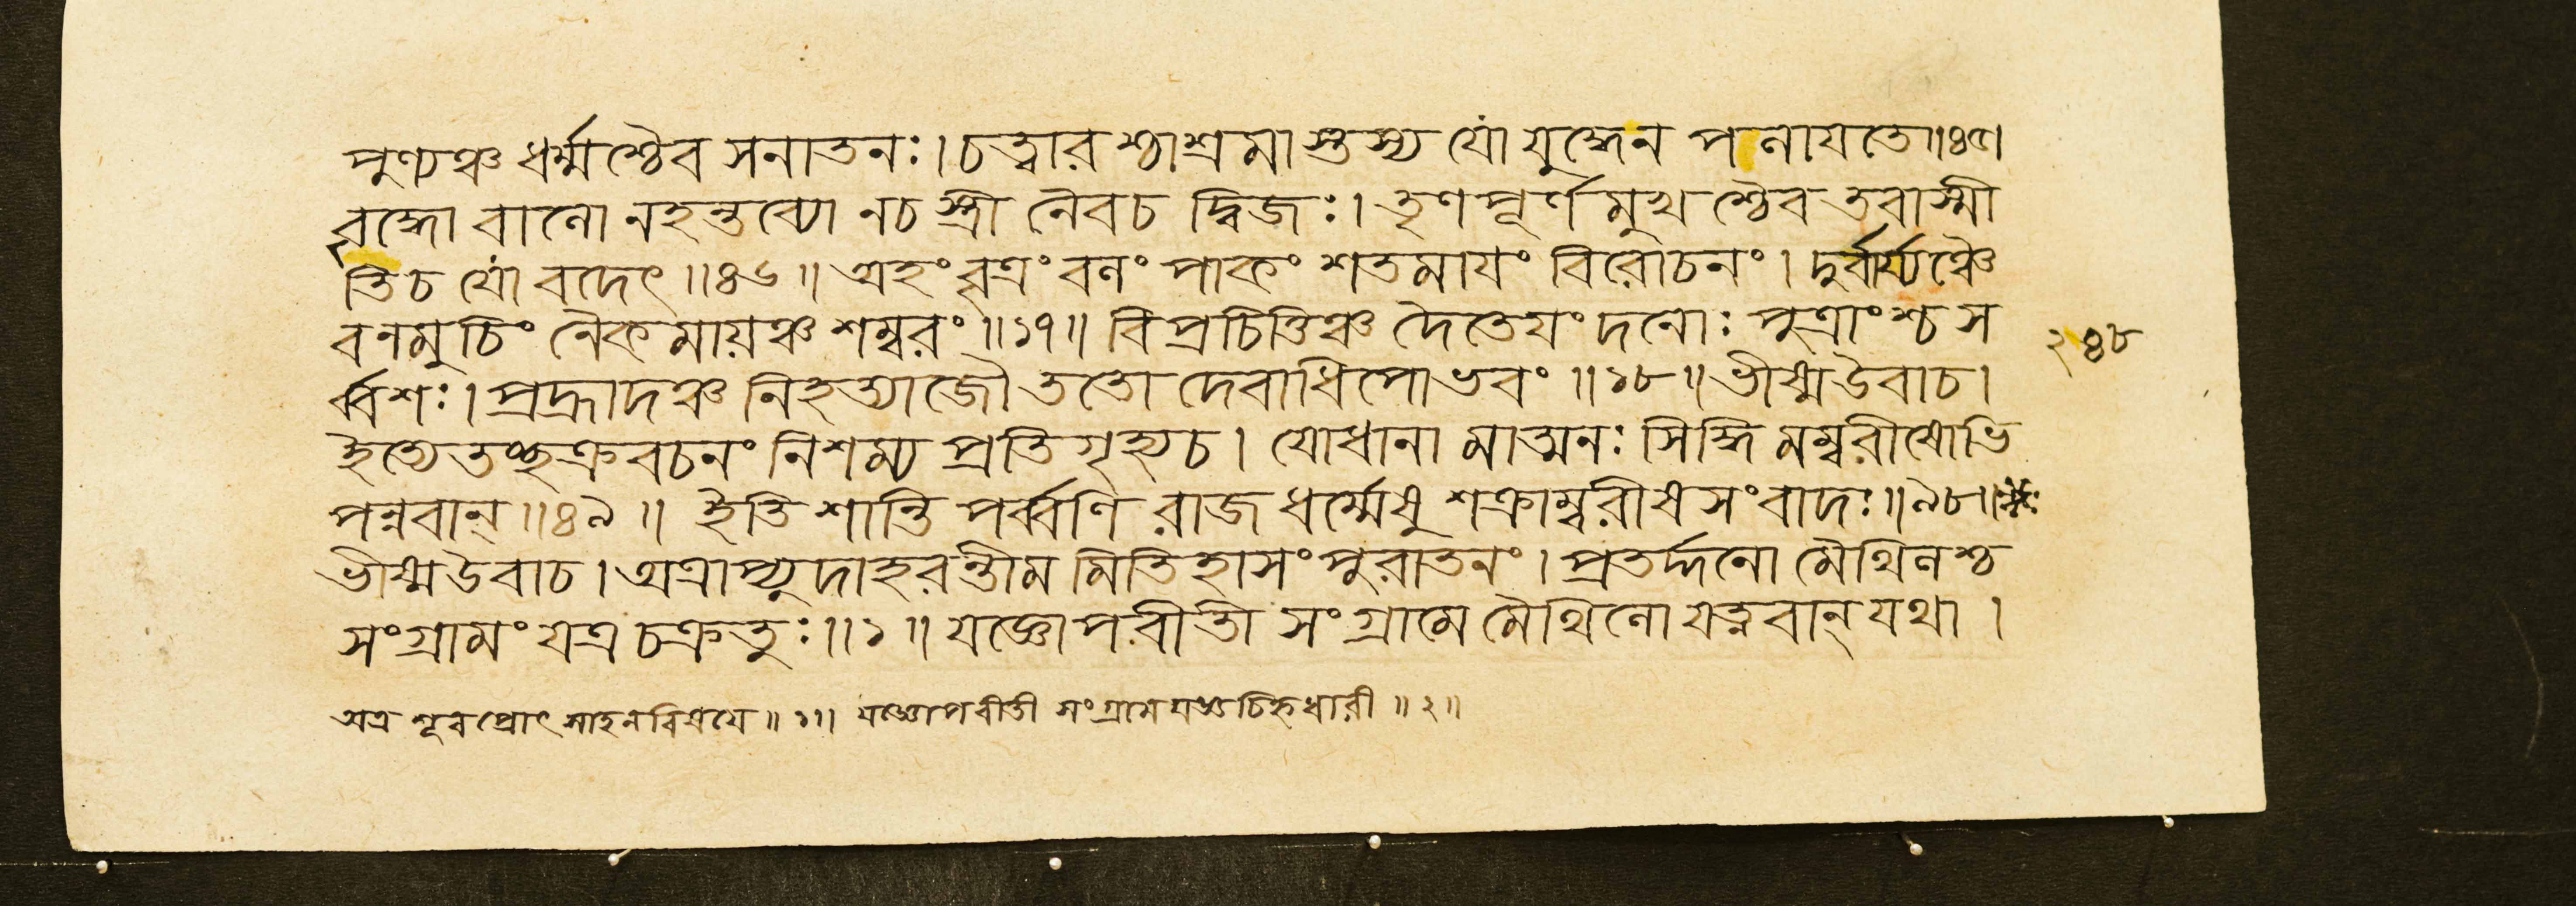 পুণ্যঞ্চ ধর্ম্মশ্চৈব সনাতনঃ। চত্বারশ্চাশ্রমাস্তস্য যো যুদ্ধেন পলাযতে॥৪৫।
বৃদ্ধো বালো নহন্তব্যো নচ স্ত্রী নৈবচ দ্বিজঃ। তৃণপূর্ণমুখশ্চৈব তবাস্মী
তিচ যো বদেৎ॥৪৬॥ অহং বৃত্রং বলং পাকং শতমাযং বিরোচনং। দুর্বার্য্যঞ্চৈ
বনমুচিং নৈকমায়ঞ্চ শম্বরং॥১৭॥ বিপ্রচিত্তিঞ্চ দৈতেযং দনোঃ পুত্রাংশ্চ স
র্ব্বশঃ। প্রহ্লাদঞ্চ নিহত্যাজৌ ততো দেবাধিপোভবং॥১৮॥ ভীষ্মউবাচ।
ইত্যেতচ্ছক্রবচনং নিশম্য প্রতিগৃহ্যচ। যোধানামাত্মনঃ সিদ্ধিমম্বরীষোভি
পন্নবান্॥৪৯॥ ইতি শান্তিপর্ব্বণি রাজধর্ম্মেষু শক্রাম্বরীষসংবাদঃ॥৯৮॥
ভীষ্মউবাচ। অত্রাপ্যুদাহরন্তীমমিতিহাসং পুরাতনং। প্রতর্দ্দনো মৈথিলশ্চ
সংগ্রামং যত্র চক্রতুঃ॥১॥ যজ্ঞোপবীতী সংগ্রামে মৈথিলো যত্নবান্ যথা।
অত্র শূরপ্রোৎসাহনবিষযে॥১॥ যজ্ঞোপবীতী সংগ্রামযজ্ঞচিহ্নধারী॥২॥
২৪৮